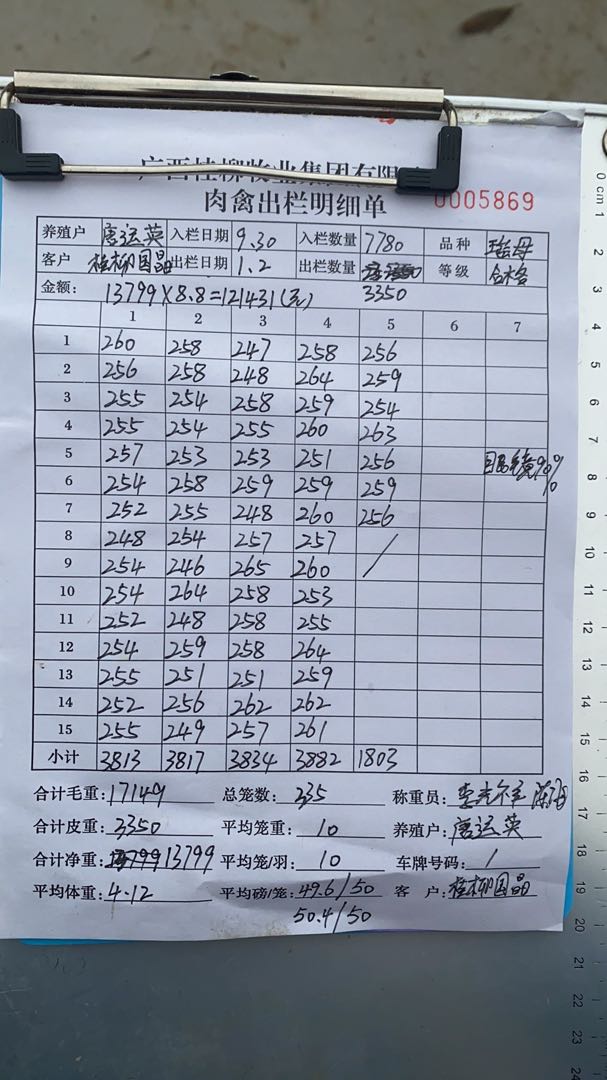 广西桂柳牧业集团有限
肉禽出栏明细单 0005869
养殖户 唐运英 入栏日期 9.30 入栏数量 7780 品种 瑶母
客户 桂柳国晶 出栏日期 1.2 出栏数量 3350 等级 合格
金额: 13799×8.8=121431(元)
1 2 3 4 5 6 7
1 260 258 247 258 256
2 256 258 248 264 259
3 255 254 258 259 254
4 255 254 255 260 263
5 257 253 253 251 256 90%
6 254 258 259 259 259
7 252 255 248 260 256
8 248 254 257 257 /
9 254 246 265 260
10 254 264 258 253
11 252 248 258 255
12 254 259 258 264
13 255 251 251 259
14 252 256 262 262
15 255 249 257 261
小计 3813 3817 3834 3882 1803
合计毛重: 17149 总笼数: 335 称重员:
合计皮重: 3350 平均笼重: 10 养殖户: 唐运英
合计净重: 13799 平均笼/羽: 10 车牌号码: /
平均体重: 4.12 平均磅/笼: 49.6/50 客 户: 桂柳国晶
50.4/50
0 cm 1 2 3 4 5 6 7 8 9 10 11 12 13 14 15 16 17 18 19 20 21 22 23 24